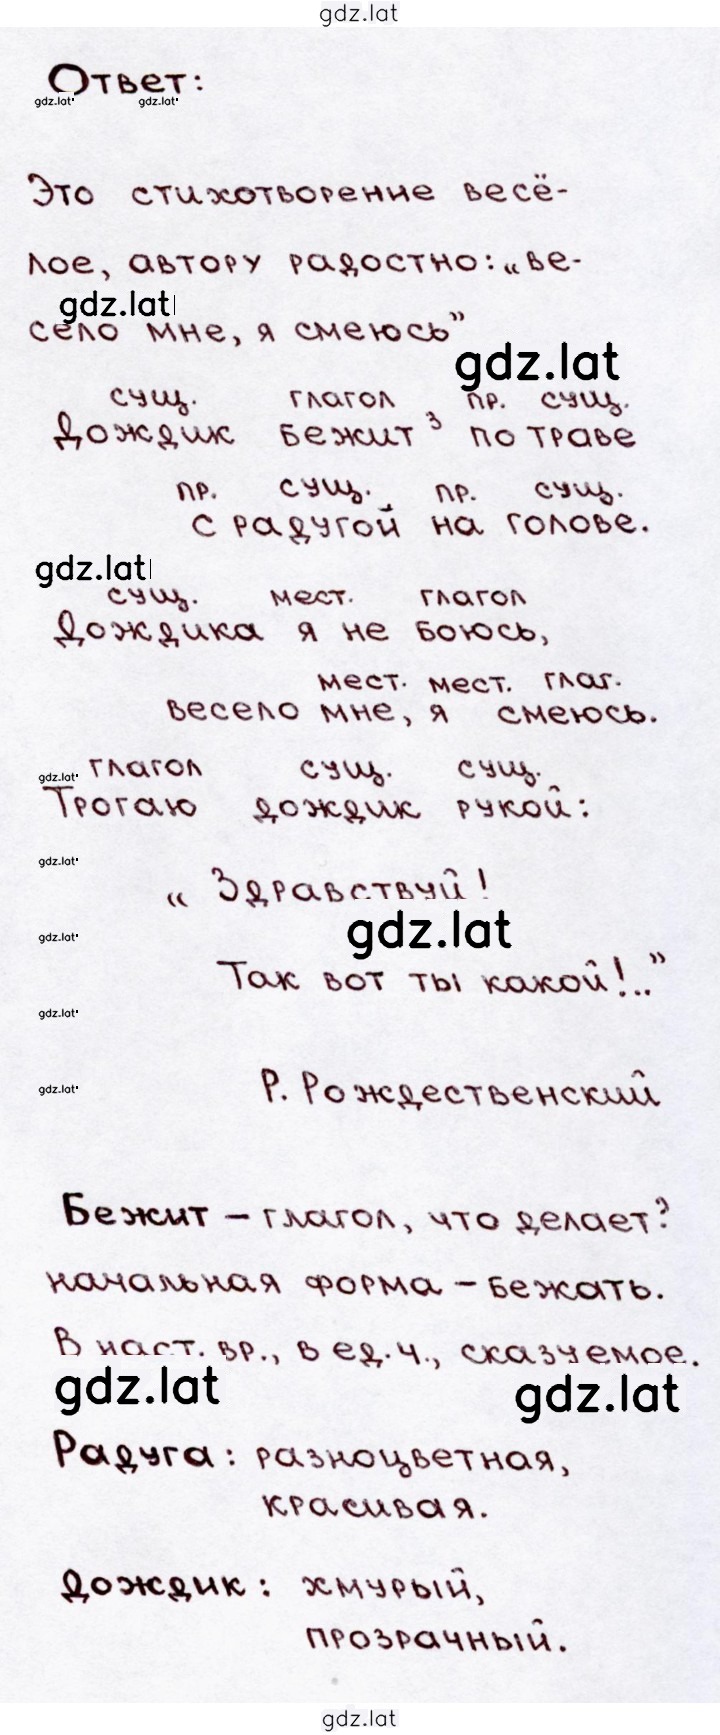 gdz.lat
Ответ:
gdz.lat gdz.lat
Это стихотворение весё-
лое, автору радостно: „ве-
gdz.lat
село мне, я смеюсь”
gdz.lat
сущ. глагол пр. сущ.
Дождик бежит³ по траве
пр. сущ. пр. сущ.
с радугой на голове.
gdz.lat
сущ. мест. глагол
Дождика я не боюсь,
мест. мест. глаг.
весело мне, я смеюсь.
глагол сущ. сущ.
gdz.lat
Трогаю дождик рукой:
gdz.lat
„Здравствуй!
gdz.lat
gdz.lat
Так вот ты какой!..”
gdz.lat
gdz.lat
Р. Рождественский
Бежит – глагол, что делает?
начальная форма – бежать.
В наст. вр., в ед.ч., сказуемое.
gdz.lat gdz.lat
Радуга: разноцветная,
красивая.
Дождик: хмурый,
прозрачный.
gdz.lat